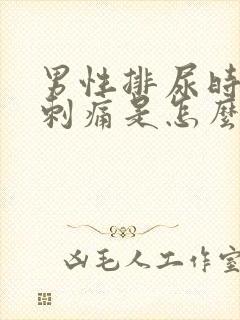 男性排尿時
刺痛是怎麼
凶毛人工作室